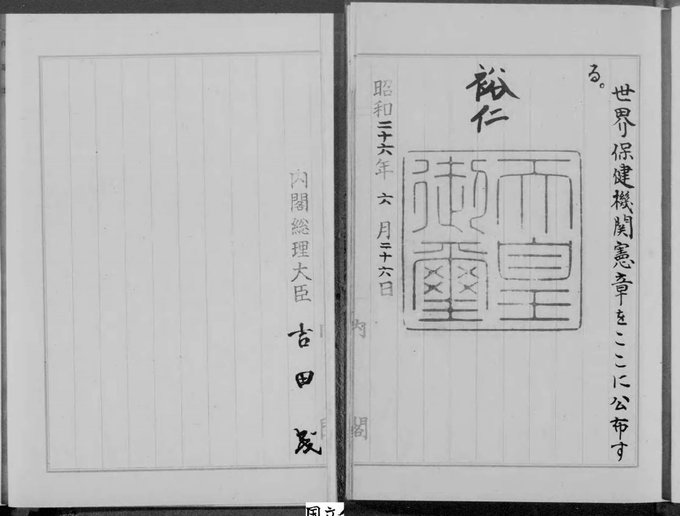 世界保健機関憲章をここに公布す
る。
裕仁
天皇
御璽
昭和二十六年六月二十六日
内閣
内閣総理大臣 吉田茂